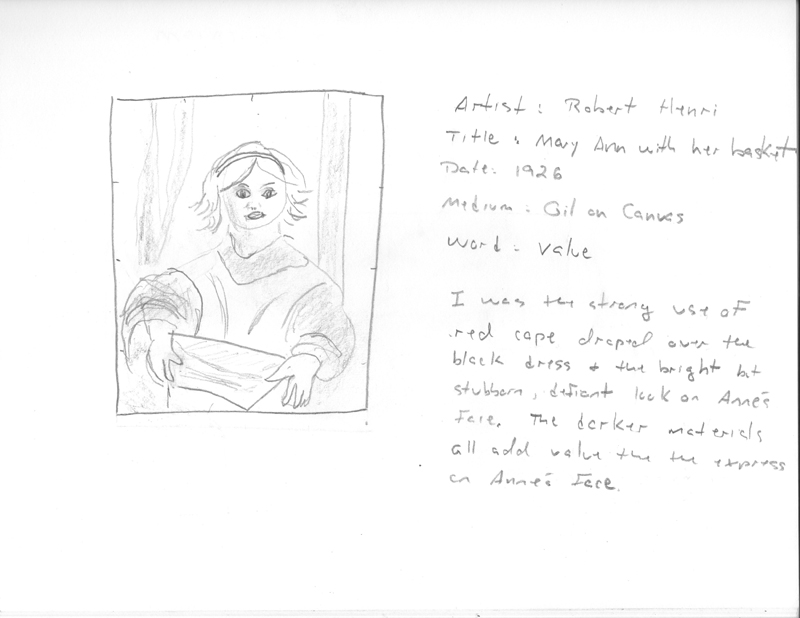 Artist : Robert Henri
Title : Mary Ann with her basket
Date: 1926
Medium : Oil on Canvas
Word : Value
I was the strong use of
red cape draped over the
black dress & the bright but
stubborn, defiant look on Anne's
Face. The darker materials
all add value the the express
on Anne's Face.